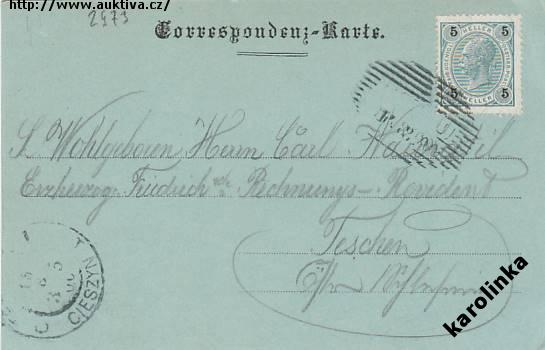 http://www.auktiva.cz/
2473
Correspondenz-Karte.
5 HELLER 5
5 HELLER 5
S. Wohlgeboren Herrn Carl
Erzherzog Friedrich Rechnungs-Revident
Teschen
CIESZYN
karolinka